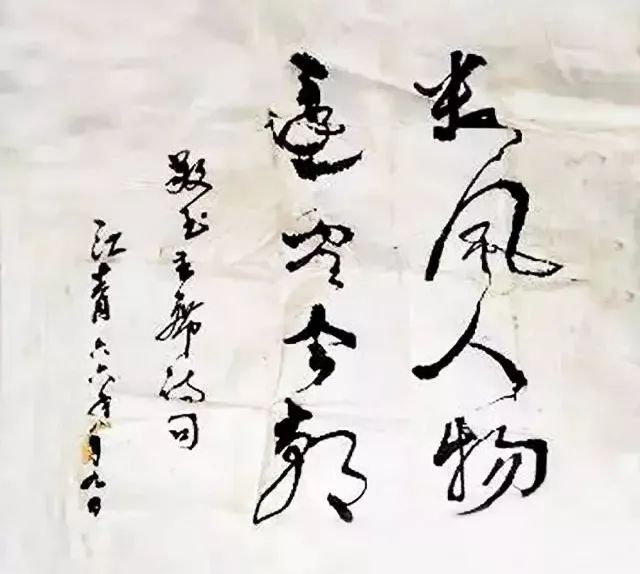 数风人物
还看今朝
敬书主席诗句
江青六六年八月九日